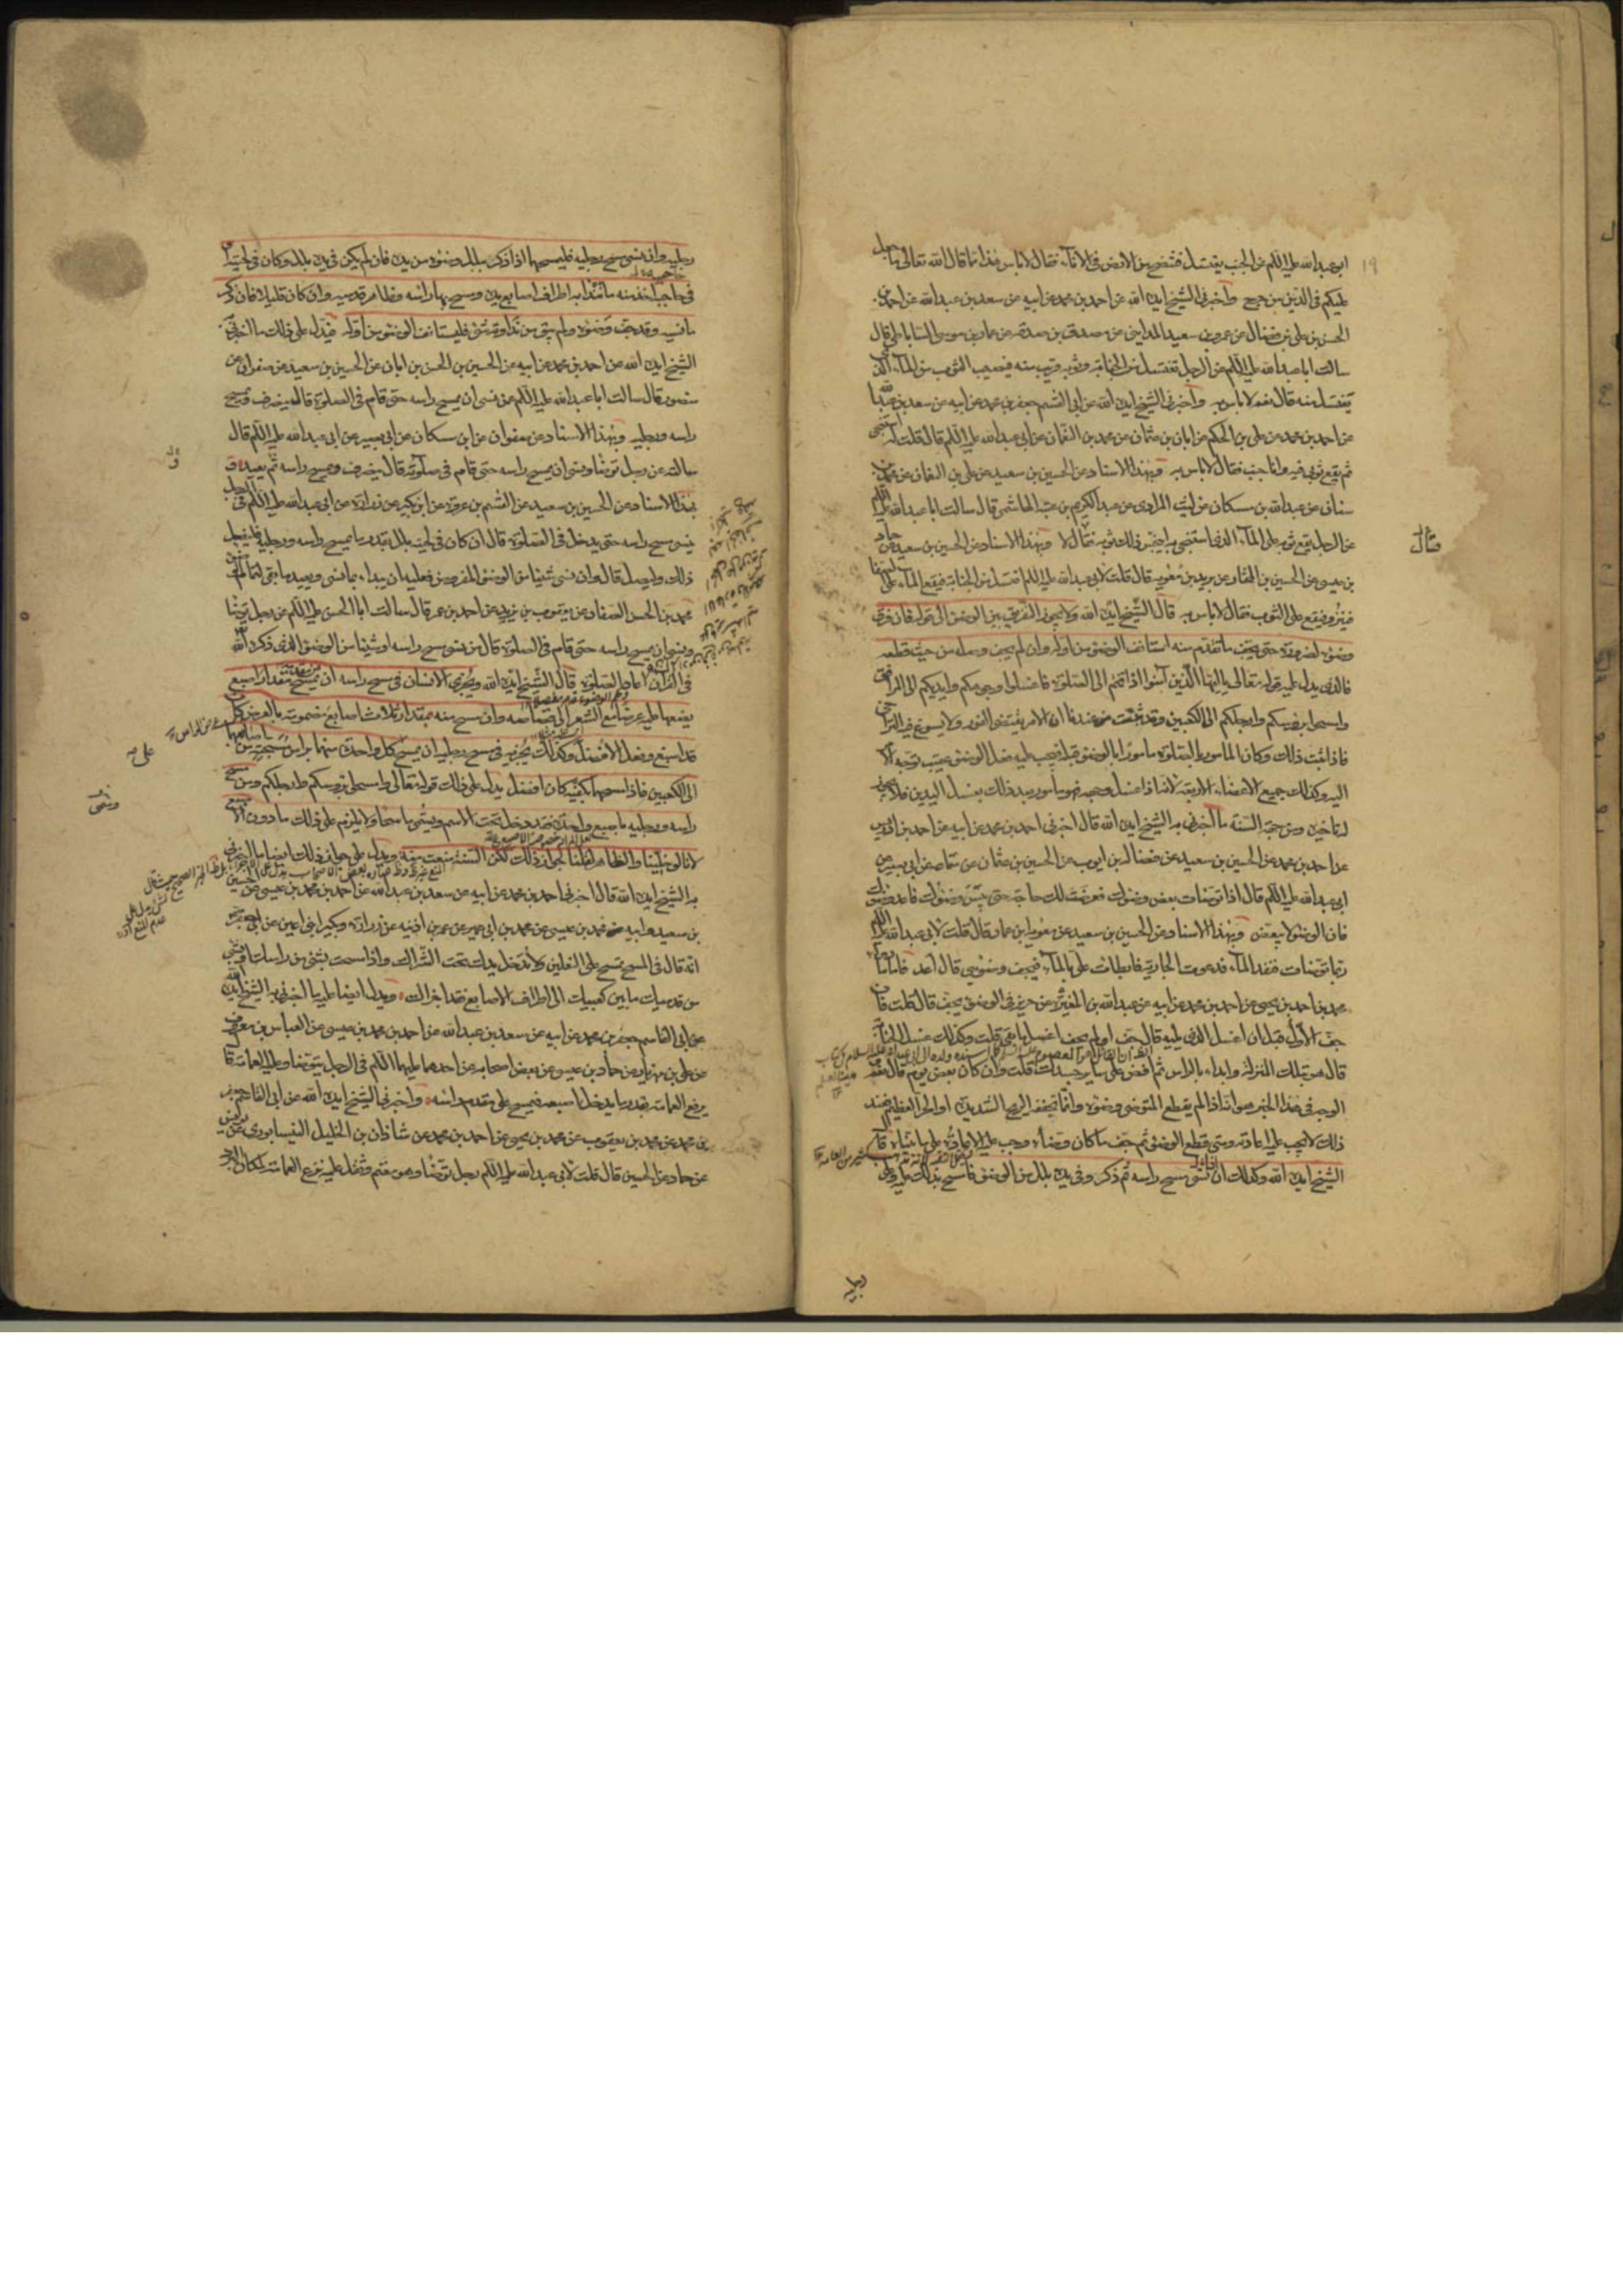 ابو عبد الله عليه اللم عن الجنب يغتسل فينتضح من الارض فى الاناء فقال لا باس هذا مما قال الله تعالى ما جعل
عليكم فى الدين من حرج واخبرنى الشيخ ايده الله عن احمد بن محمد عن ابيه عن سعد بن عبد الله عن احمد بن
الحسن بن على بن فضال عن عمرو بن سعيد المداينى عن مصدق بن صدقه عن عمار بن موسى الساباطى قال
سالت ابا عبد الله عليه اللم عن الرجل يغتسل من الجنابة وثوبه قريب منه فيصيب الثوب من الماء الذى
يغتسل منه قال نعم لا باس به واخبرنى الشيخ ايده الله عن ابى القسم جعفر بن محمد عن ابيه عن سعد بن عبد الله
عن احمد بن محمد عن على بن الحكم عن ابان بن عثمان عن محمد بن النعمان عن ابى عبد الله عليه اللم قال قلت له استنجى
ثم يقع ثوبى فيه وانا جنب فقال لا باس به وبهذا الاسناد عن الحسين بن سعيد عن على بن النعمان عن محمد بن
سنان عن عبد الله بن مسكان عن ليث المرادى عن عبد الكريم بن عتبة الهاشمى قال سالت ابا عبد الله عليه اللم
عن الرجل يقع ثوبه على الماء الذى استنجى به اينجس ذلك ثوبه فقال لا وبهذا الاسناد عن الحسين بن سعيد عن حماد
بن عيسى عن الحسين بن المختار عن بريد بن معويه قال قلت لابى عبد الله عليه اللم اغتسل من الجنابة فيقع الماء على الصفا
فينزو فيقع على الثوب فقال لا باس به قال الشيخ ايده الله ولا يجوز التفريق بين الوضوء الى قوله فان فرق
وضوءه لضرورة حتى يجف ما تقدم منه استانف الوضوء من اوله وان لم يجف وصله من حيث قطعه
فالذى يدل عليه قوله تعالى يا ايها الذين آمنوا اذا قمتم الى الصلوة فاغسلوا وجوهكم وايديكم الى المرافق
وامسحوا برؤسكم وارجلكم الى الكعبين وقد ثبت عندنا ان الامر يقتضى الفور ولا يسوغ فيه التراخى
فاذا ثبت ذلك وكان المامور بالصلوة مامورا بالوضوء قبلها فيجب عليه فعل الوضوء عقيب توجه الامر
اليه وكذلك جميع الاعضاء الاربعة لانه اذا غسل وجهه فهو مامور بعد ذلك بغسل اليدين فلا يجوز
له تاخيره ومن جهة السنة ما اخبرنى به الشيخ ايده الله قال اخبرنى احمد بن محمد عن ابيه عن احمد بن ادريس
عن احمد بن محمد عن الحسين بن سعيد عن فضالة بن ايوب عن الحسين بن عثمان عن سماعة عن ابى بصير عن
ابى عبد الله عليه اللم قال اذا توضات بعض وضوئك فعرضت لك حاجة حتى يبس وضوئك فاعد وضوءك
فان الوضوء لا يبعض وبهذا الاسناد عن الحسين بن سعيد عن معويه بن عمار قال قلت لابى عبد الله عليه اللم
ربما توضات فنفد الماء فدعوت الجارية فابطات على بالماء فيجف وضوئى قال اعد فاما ما رواه
محمد بن احمد بن يحيى عن احمد بن محمد عن ابيه عن عبد الله بن المغيرة عن حريز فى الوضوء يجف قال قلت فان
جف الاول قبل ان اغسل الذى يليه قال جف او لم يجف اغسل ما بقى قلت وكذلك غسل الجنابة
قال هو بتلك المنزلة وابداء بالراس ثم افض على ساير جسدك قلت وان كان بعض يوم قال نعم
الوجه فى هذا الخبر هو انه اذا لم يقطع المتوضى وضوءه وانما تجففه الريح الشديدة او الحر العظيم فعند
ذلك لا يجب عليه اعادته ومتى قطع الوضوء ثم جف ما كان وضأه وجب عليه الاعادة على ما بيناه قال
الشيخ ايده الله وكذلك ان نسى مسح راسه ثم ذكر وفى يده بلل من الوضوء فليمسح بذلك عليه وعلى
رجليه
رجليه وان نسى مسح رجليه فليمسحهما اذا ذكر ببلل وضوئه من يده فان لم يكن فى يده بلل وكان فى لحيته او
فى حاجبه اخذ منه ما تندا به اطراف اصابع يده ومسح بها راسه وظاهر قدميه وان كان قليلا فان ذكر
ما نسيه وقد جف وضوءه ولم يبق من نداوته شئ فليستانف الوضوء من اوله فيدل على ذلك ما اخبرنى
الشيخ ايده الله عن احمد بن محمد عن ابيه عن الحسين بن الحسن بن ابان عن الحسين بن سعيد عن صفوان عن
منصور قال سالت ابا عبد الله عليه اللم عمن نسى ان يمسح راسه حتى قام فى الصلوة قال ينصرف ويمسح
راسه ورجليه وبهذا الاسناد عن صفوان عن ابن مسكان عن ابى بصير عن ابى عبد الله عليه اللم قال
سالته عن رجل توضا ونسى ان يمسح راسه حتى قام فى صلوته قال ينصرف ويمسح راسه ثم يعيد و
بهذا الاسناد عن الحسين بن سعيد عن القسم بن عروة عن ابن بكير عن زرارة عن ابى عبد الله عليه اللم فى الرجل
ينسى مسح راسه حتى يدخل فى الصلوة قال ان كان فى لحيته بلل بقدر ما يمسح راسه ورجليه فليفعل
ذلك وليصل قال وان نسى شيئا من الوضوء المفروض فعليه ان يبداء بما نسى ويعيد ما بقى لتمام الوضوء
محمد بن الحسن الصفار عن يعقوب بن يزيد عن احمد بن عمر قال سالت ابا الحسن عليه اللم عن رجل توضا
ونسى ان يمسح راسه حتى قام فى الصلوة قال من نسى مسح راسه او شيئا من الوضوء الذى ذكره الله
فى القرآن اعاد الصلوة قال الشيخ ايده الله ويجزى الانسان فى مسح راسه ان يمسح من مقدمه مقدار اصبع
يضعها عليه عرضا مع الشعر الى قصاصه وان مسح منه بمقدار ثلاث اصابع مضمومة بالعرض كان
قد اسبغ وفعل الافضل وكذلك يجزيه فى مسح رجليه ان يمسح كل واحدة منهما براس مسبحته من اصابعهما
الى الكعبين فاذا مسحهما بكفيه كان افضل يدل على ذلك قوله تعالى وامسحوا برؤسكم وارجلكم ومن مسح
راسه ورجليه باصبع واحدة فقد دخل تحت الاسم ويسمى ماسحا ولا يلزم على ذلك ما دون الاصبع
لانا لو خلينا والظاهر لقلنا بجواز ذلك لكن السنة منعت منه ويدل على جواز ذلك ايضا ما اخبرنى
به الشيخ ايده الله قال اخبرنى احمد بن محمد عن ابيه عن سعد بن عبد الله عن احمد بن محمد بن عيسى عن الحسين
بن سعيد وابيه محمد بن عيسى عن محمد بن ابى عمير عن عمر بن اذينه عن زرارة وبكير ابنى اعين عن ابى جعفر
انه قال فى المسح تمسح على النعلين ولا تدخل يدك تحت الشراك واذا مسحت بشئ من راسك او بشئ
من قدميك ما بين كعبيك الى اطراف الاصابع فقد اجزاك ويدل ايضا عليه ما اخبرنى به الشيخ ايده الله
عن ابى القاسم جعفر بن محمد عن ابيه عن سعد بن عبد الله عن احمد بن محمد بن عيسى عن العباس بن معروف
عن على بن مهزيار عن حماد بن عيسى عن بعض اصحابه عن احدهما عليهما اللم فى الرجل يتوضا وعليه العمامة قال
يرفع العمامة بقدر ما يدخل اصبعه فيمسح على مقدم راسه واخبرنى الشيخ ايده الله عن ابى القاسم جعفر
بن محمد عن محمد بن يعقوب عن محمد بن يحيى عن احمد بن محمد عن شاذان بن الخليل النيسابورى عن يونس
عن حماد عن الحسين قال قلت لابى عبد الله عليه اللم رجل توضا وهو معتم وثقل عليه نزع العمامة لمكان البرد